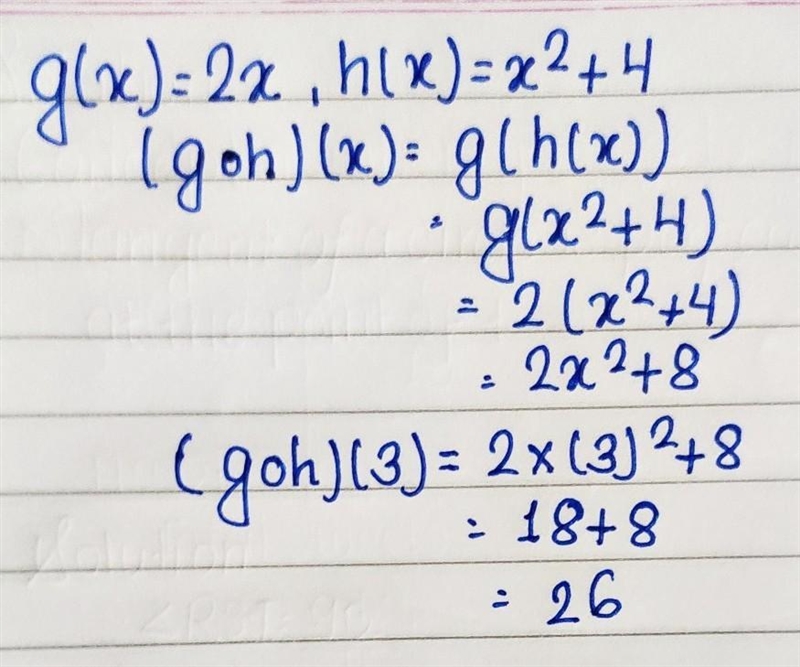 g(x) = 2x , h(x) = x² + 4
(goh)(x) = g(h(x))
= g(x² + 4)
= 2(x² + 4)
= 2x² + 8
(goh)(3) = 2 × (3)² + 8
= 18 + 8
= 26